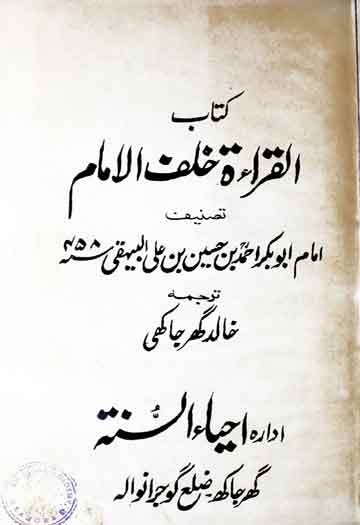 کتاب
القراءة خلف الامام
تصنیف
امام ابوبکر احمد بن حسین بن علی البیہقی ۴۵۸ھ
ترجمہ
خالد گھرجاکھی
ادارہ احیاء السنة
گھرجاکھ ضلع گوجرانوالہ